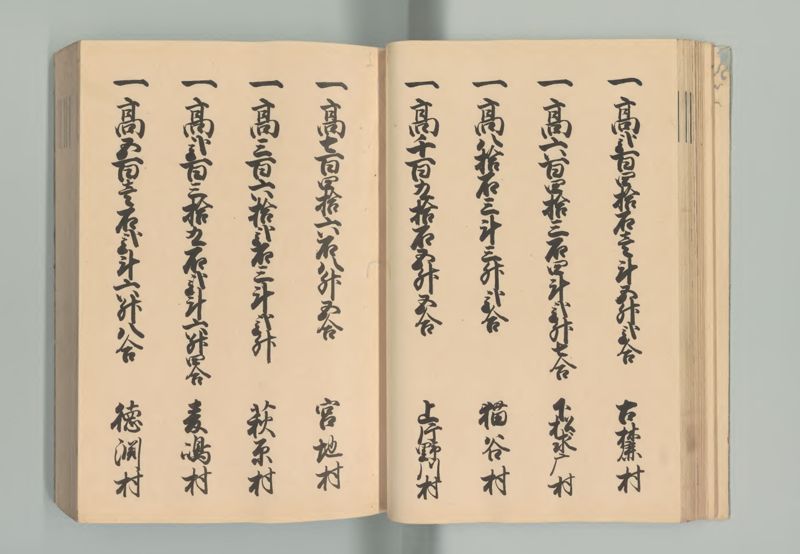 一高弐百四拾石壱斗五升弐合 古麓村
一高六百四拾三石四斗弐升七合 下松求广村
一高八拾石三斗三升弐合 猫谷村
一高千百九拾石五升五合 上片野川村
一高七百四拾六石八升五合 宮地村
一高三百六拾弐石三斗弐升 萩原村
一高弐百三拾九石弐斗六升四合 麦嶋村
一高五百壱石弐斗六升八合 徳渕村